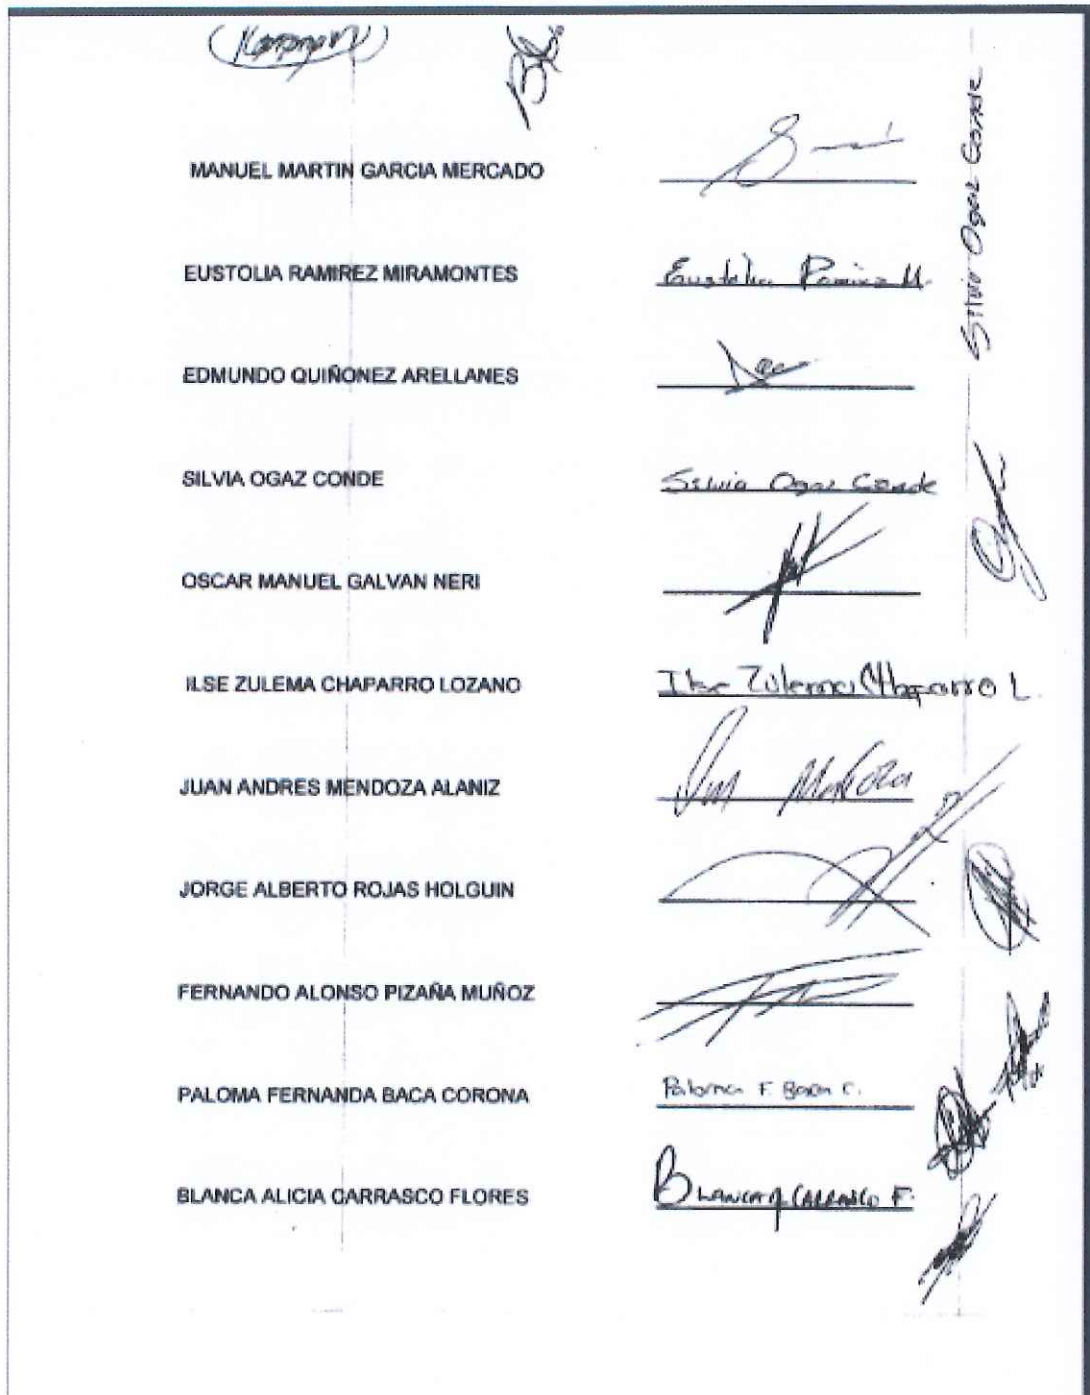 MANUEL MARTIN GARCIA MERCADO
EUSTOLIA RAMIREZ MIRAMONTES
Eustolia Ramirez M.
EDMUNDO QUIÑONEZ ARELLANES
SILVIA OGAZ CONDE
Silvia Ogaz Conde
OSCAR MANUEL GALVAN NERI
ILSE ZULEMA CHAPARRO LOZANO
Ilse Zulema Chaparro L.
JUAN ANDRES MENDOZA ALANIZ
Mendoza
JORGE ALBERTO ROJAS HOLGUIN
FERNANDO ALONSO PIZAÑA MUÑOZ
PALOMA FERNANDA BACA CORONA
Paloma F. Baca C.
BLANCA ALICIA CARRASCO FLORES
BLANCA A CARRASCO F.
Silvia Ogaz Conde